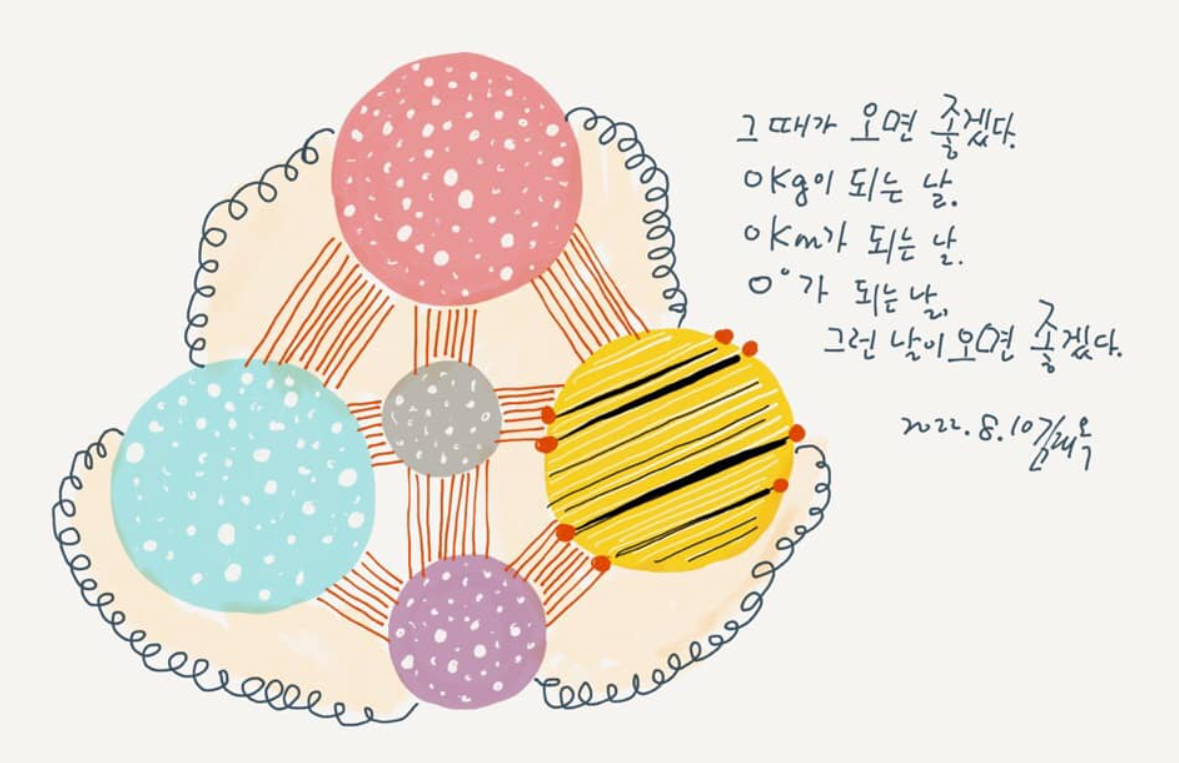 그 때가 오면 좋겠다.
0kg이 되는 날.
0km가 되는 날.
0°가 되는 날,
그런 날이 오면 좋겠다.
2022.8.10